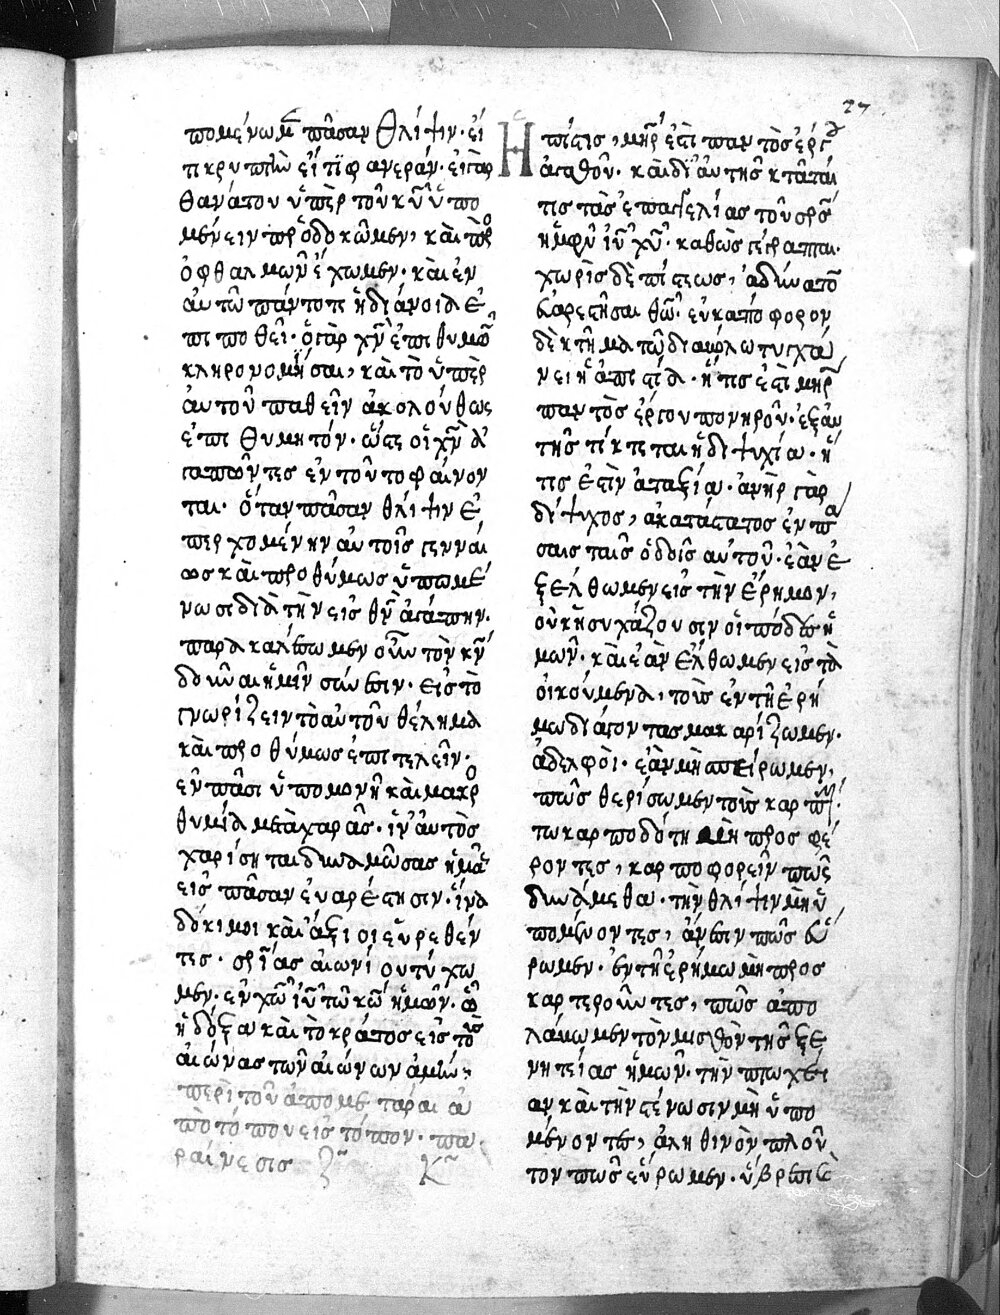 27
πομένωμ̅ πᾶσαν θλίψιν· εἴ
τι κρυπτὴν εἴ τι φανεράν· εἰ γὰρ
θανάτου ὑπὲρ τοῦ κ̅υ̅ ὑπο
μένειν προσδοκῶμεν, καὶ πρὸ
ὀφθαλμῶν ἔχωμεν· καὶ ἐν
αὐτῶ πάντοτε ἡ διάνοια ἐ
πιποθεῖ· ὁ γὰρ χ̅ν̅ ἐπιθυμῶ
κληρονομῆσαι, καὶ τὸ ὑπὲρ
αὐτοῦ παθεῖν ἀκολούθως
ἐπιθυμητόν· ὥστε οἱ χ̅ν̅ ἀ
γαπῶντες ἐν τούτο φαίνον
ται· ὅταν πᾶσαν θλίψιν ἐ
περχομένην αὐτοῖς γενναί
ως καὶ προθύμως ὑπομέ
νωσι διὰ τὴν εἰς θ̅ν̅ ἀγάπην·
παρακαλέσωμεν οὖν τὸν κ̅ν̅
δοῦναι ἡμῖν σύνεσιν· εἰς τὸ
γνωρίζειν τὸ αὐτοῦ θέλημα
καὶ προθύμως ἐπιτελεῖν·
ἐν πᾶσι ὑπομονῆ καὶ μακρο
θυμία μετὰ χαρᾶς· ἵν' αὐτὸς
χαρίσηται δυναμώσας ἡμᾶς
εἰς πᾶσαν εὐαρέστησιν· ἵνα
δόκιμοι καὶ ἄξιοι εὑρεθέν
τες· σρ̅ίας αἰωνίου τύχω
μεν· ἐν χ̅ω̅ ι̅υ̅ τῶ κ̅ω̅ ἡμῶν· ὧ
ἡ δόξα καὶ τὸ κράτος εἰς τοὺς
αἰῶνας τῶν αἰώνων ἀμήν:
περὶ τοῦ ἀπομεταραι ἀ
πὸ τόπου εἰς τόπον· πα
ραίνεσις ζ̅ κ̅
Η πίστις, μη̅ρ ἐστὶ παντὸς ἔργου
ἀγαθοῦ· καὶ δι' αὐτῆς κτᾶταί
τις τὰς ἐπαγγελίας τοῦ σρ̅σ
ἡμῶν ι̅υ̅ χ̅υ̅· καθὼς γέγραπται·
χωρὶς δὲ πίστεως, ἀδύνατον
εὐαρεστῆσαι θ̅ω̅· εὐκατάφορον
δὲ κτῆμα τῶ διαβόλω τυγχά
νει ἡ ἀπιστία· ἥτις ἐστὶ μη̅ρ
παντὸς ἔργου πονηροῦ· ἐξ αὐ
τῆς τίκτεται ἡ διψυχία· ἥ
τις ἐστὶν ἀταξία· ἀνὴρ γὰρ
δίψυχος, ἀκατάστατος ἐν πά
σαις ταῖς ὁδοῖς αὐτοῦ· ἐὰν ἐ
ξέλθωμεν εἰς τὴν ἔρημον,
οὐκ ἡσυχάζουσιν οἱ πόδες ἡ
μῶν· καὶ ἐὰν ἔλθωμεν εἰς τὰ
οἰκούμενα, τοὺς ἐν τῆ ἐρή
μω διάγοντας μακαρίζωμεν·
ἀδελφοί· ἐὰν μὴ σπείρωμεν,
πῶς θερίσωμεν τοὺς καρπούς·
τῶ καρποδότη μὴ προσφέ
ροντες, καρποφορεῖν πῶς
δυνάμεθα· τὴν θλίψιν μὴ ὑ
πομένοντες, ἄνεσιν πῶς εὕ
ρωμεν· ἐν τῆ ἐρήμω μὴ προσ
καρτεροῦντες, πῶς ἀπο
λάβωμεν τὸν μισθὸν τῆς ξε
νητείας ἡμῶν· τὴν πτωχεί
αν καὶ τὴν στένωσιν μὴ ὑπο
μένοντες, ἀληθινὸν πλοῦ
τον πῶς εὕρωμεν· ὕβρεσι